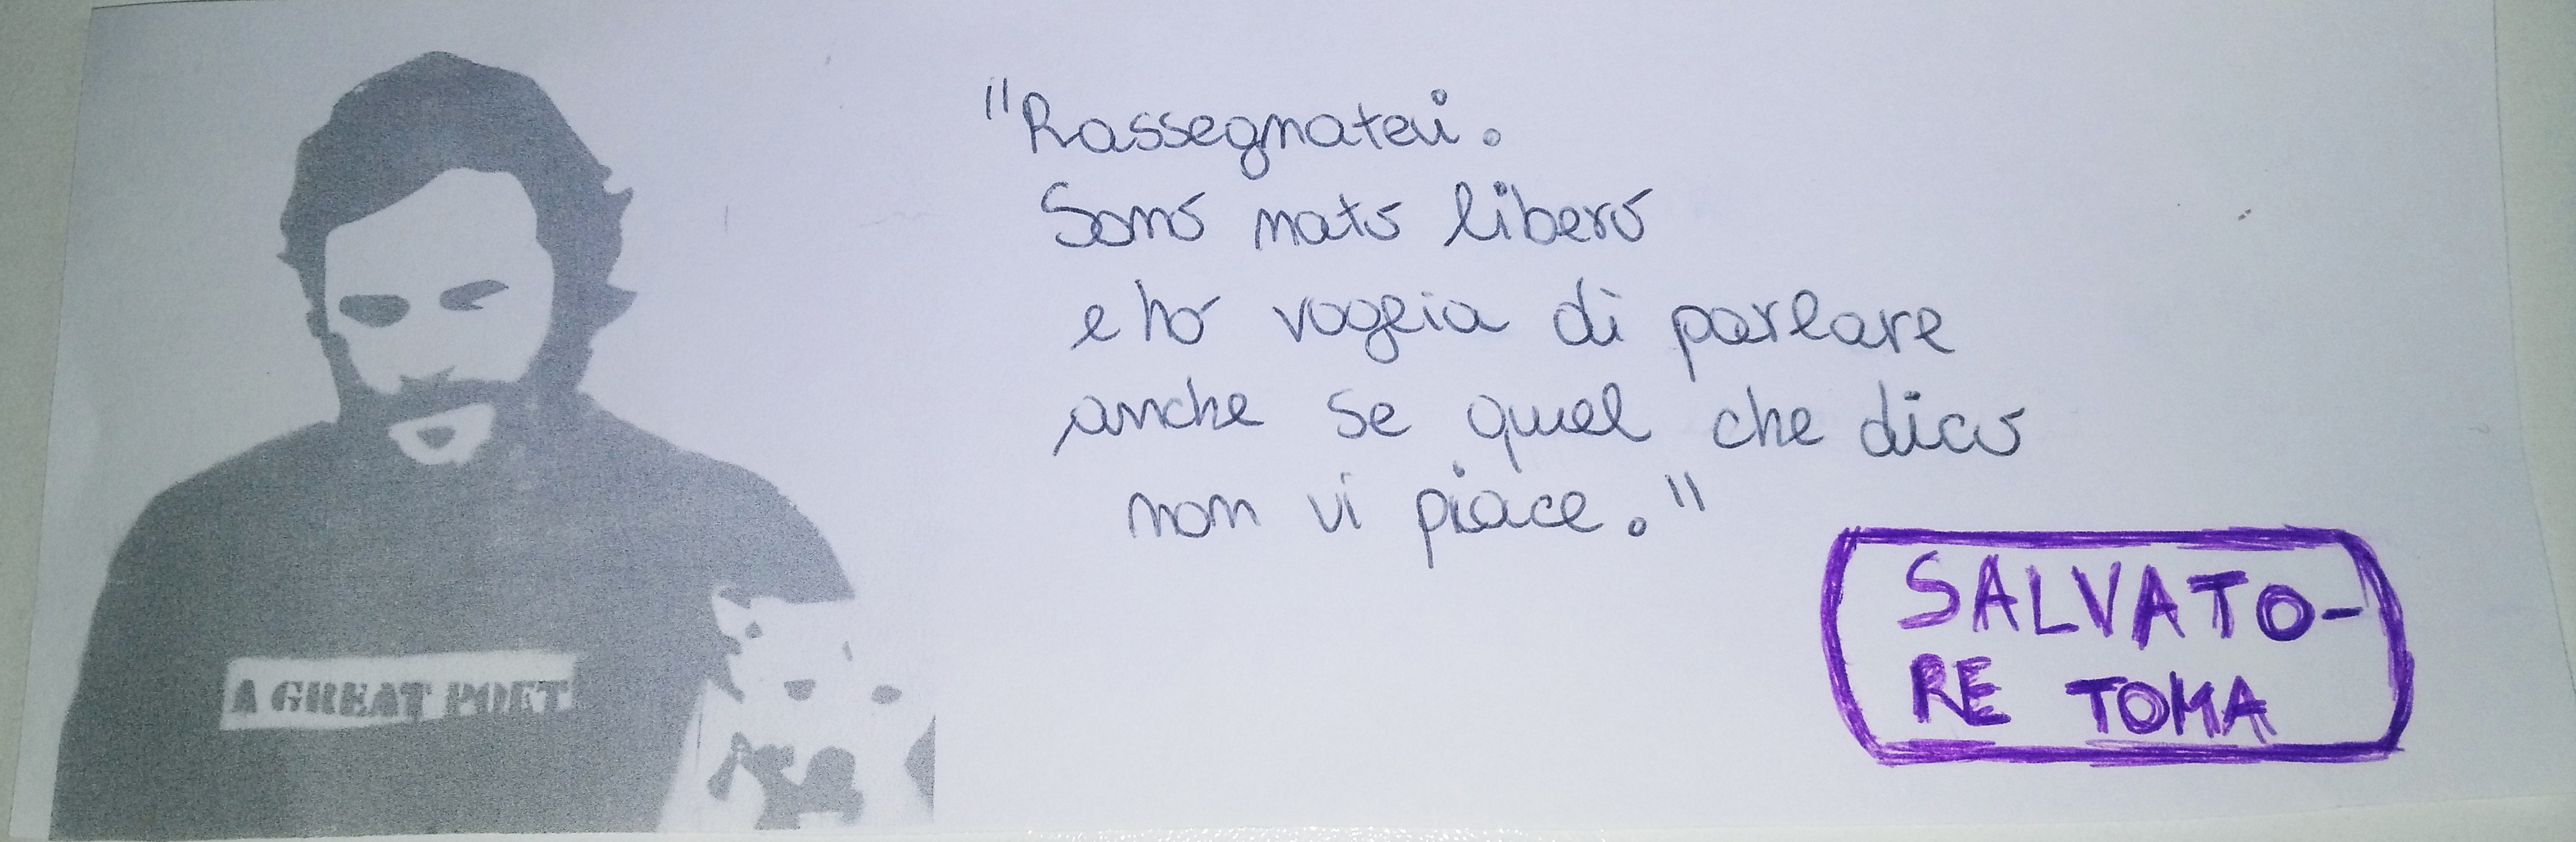 A GREAT POET
"Rassegnatevi.
Sono nato libero
e ho voglia di parlare
anche se quel che dico
non vi piace."
SALVATO-
RE TOMA